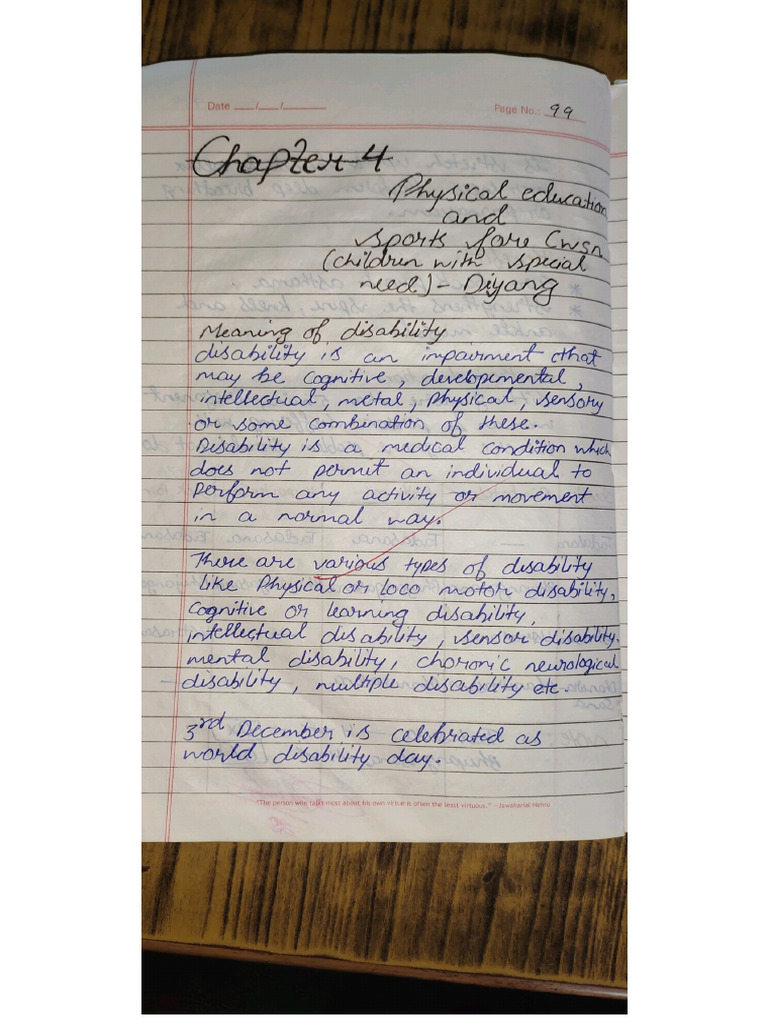 Date ___/___/______
Page No.: 99
Chapter-4
Physical education
and
sports fore Cwsn
(children with special
need) - Diyang
Meaning of disability
disability is an impairment that
may be cognitive, developmental,
intellectual, metal, physical, sensory
or some combination of these.
Disability is a medical condition which
does not permit an individual to
perform any activity or movement
in a normal way.
There are various types of disability
like Physical or loco motor disability,
Cognitive or learning disability,
intellectual disability, sensor disability.
mental disability, choronic neurological
disability, multiple disability etc.
3rd December is celebrated as
world disability day.
"The person who talks most about his own virtue is often the least virtuous." – Jawaharlal Nehru